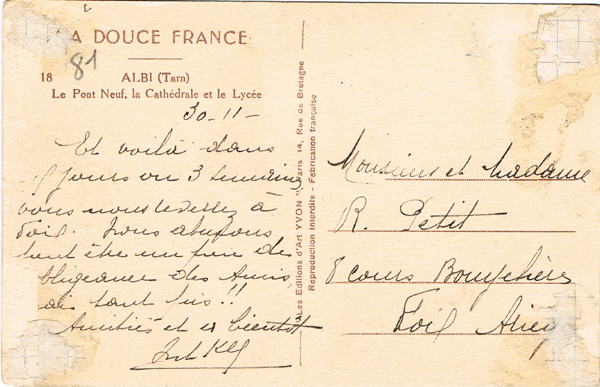 LA DOUCE FRANCE
81
18 ALBI (Tarn)
Le Pont Neuf, la Cathédrale et le Lycée
30-11-
Et voilà dans
jours ou 3 semaines
vous nous reverrez à
Foix. Nous abusons
peut être un peu de
obligeance des Amis
tant pis!!
Amitiés et à bientôt
Les Editions d'Art YVON, Paris, 14, Rue de Bretagne
Reproduction Interdite - Fabrication française
Monsieur et Madame
R. Petit
8 cours Bouychères
Foix Ariège